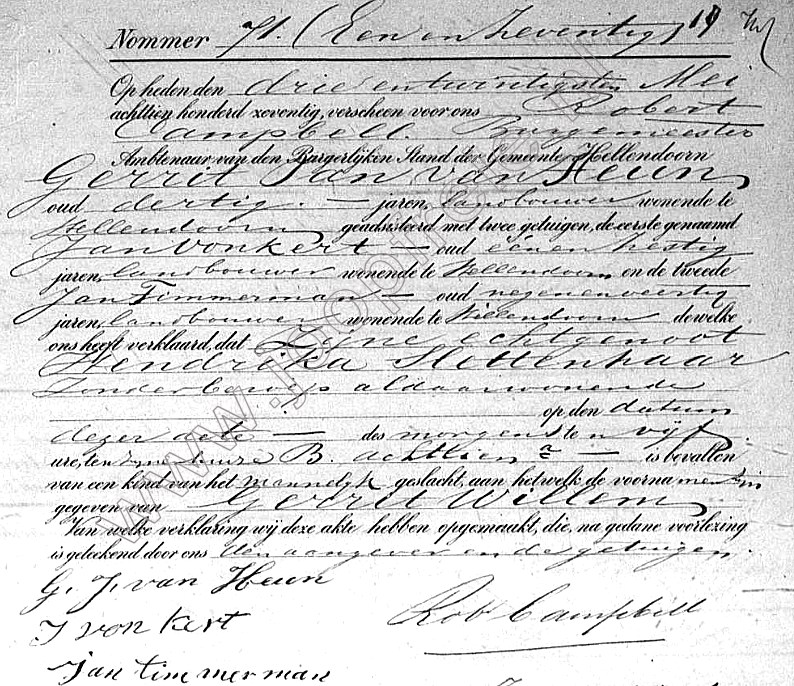 Nommer 71. (Een en Zeventig) 19
Op heden den drie en twintigsten Mei
achttien honderd zeventig, verscheen voor ons Robert
Campbell. Burgemeester
Ambtenaar van den Burgerlijken Stand der Gemeente Hellendoorn
Gerrit Jan van Heun
oud dertig — jaren, landbouwer wonende te
Hellendoorn geadsisteerd met twee getuigen, de eerste genaamd
Jan Vonkert — oud eenen sestig
jaren, landbouwer wonende te Hellendoorn en de tweede
Jan Timmerman — oud negenenveertig
jaren, landbouwer wonende te Hellendoorn dewelke
ons heeft verklaard, dat Zyne echtgenoot
Hendrika Slettenhaar
Zonder beroep aldaar wonende
op den datum
dezer acte — des morgens ten vijf
ure, ten zyne huize B. achttien a — is bevallen
van een kind van het mannelyk geslacht, aan hetwelk de voorna men zyn
gegeven van Gerrit Willem
Van welke verklaring wij deze akte hebben opgemaakt, die, na gedane voorlezing
is geteekend door ons den aangever en de getuigen.
G. J. van Heun
J vonkert
Rob Campbell
Jan timmerman